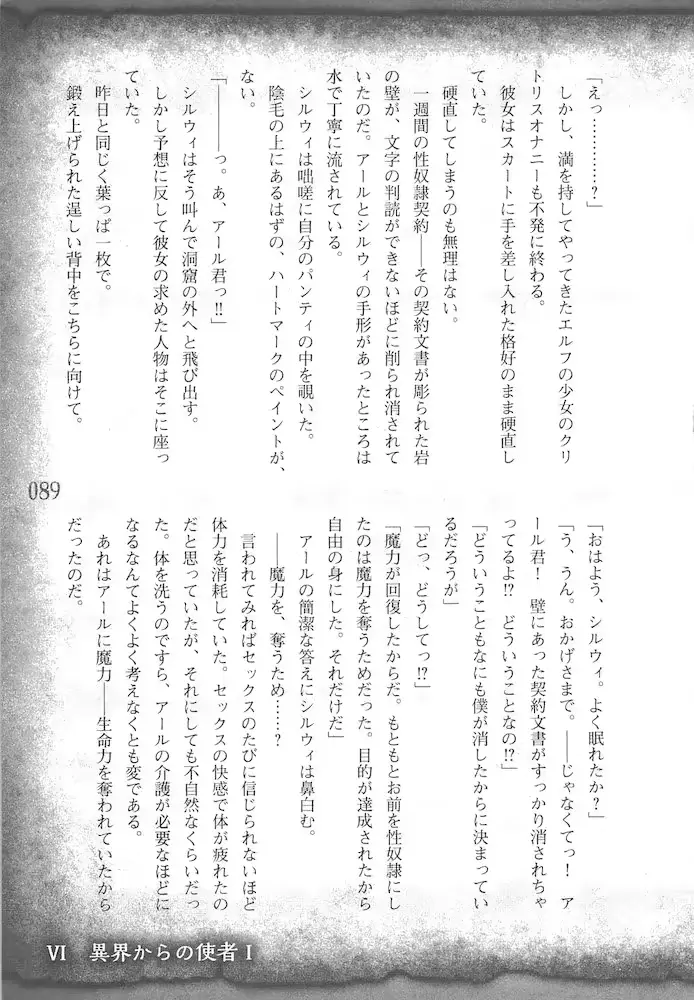 「えっ…………？」
　しかし、満を持してやってきたエルフの少女のクリ
トリスオナニーも不発に終わる。
　彼女はスカートに手を差し入れた格好のまま硬直し
ていた。
　硬直してしまうのも無理はない。
　一週間の性奴隷契約――その契約文書が彫られた岩
の壁が、文字の判読ができないほどに削られ消されて
いたのだ。アールとシルウィの手形があったところは
水で丁寧に流されている。
　シルウィは咄嗟に自分のパンティの中を覗いた。
　陰毛の上にあるはずの、ハートマークのペイントが、
ない。
「――っ。あ、アール君っ!!」
　シルウィはそう叫んで洞窟の外へと飛び出す。
　しかし予想に反して彼女の求めた人物はそこに座っ
ていた。
　昨日と同じく葉っぱ一枚で。
　鍛え上げられた逞しい背中をこちらに向けて。
「おはよう、シルウィ。よく眠れたか？」
「う、うん。おかげさまで。――じゃなくてっ！　ア
ール君！　壁にあった契約文書がすっかり消されちゃ
ってるよ!?　どういうことなの!?」
「どういうこともなにも僕が消したからに決まってい
るだろうが」
「どっ、どうしてっ!?」
「魔力が回復したからだ。もともとお前を性奴隷にし
たのは魔力を奪うためだった。目的が達成されたから
自由の身にした。それだけだ」
　アールの簡潔な答えにシルウィは鼻白む。
　――魔力を、奪うため……？
　言われてみればセックスのたびに信じられないほど
体力を消耗していた。セックスの快感で体が疲れたの
だと思っていたが、それにしても不自然なくらいだっ
た。体を洗うのですら、アールの介護が必要なほどに
なるなんてよくよく考えなくとも変である。
　あれはアールに魔力――生命力を奪われていたから
だったのだ。
089
VI　異界からの使者 I